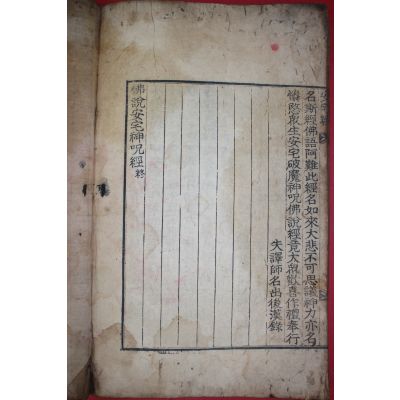 名斯經佛語阿難此經名如來大悲不可思議神力亦名
憐愍衆生安宅破魔神呪佛說經竟大衆歡喜作禮奉行
失譯師名出後漢錄
佛說安宅神呪經終